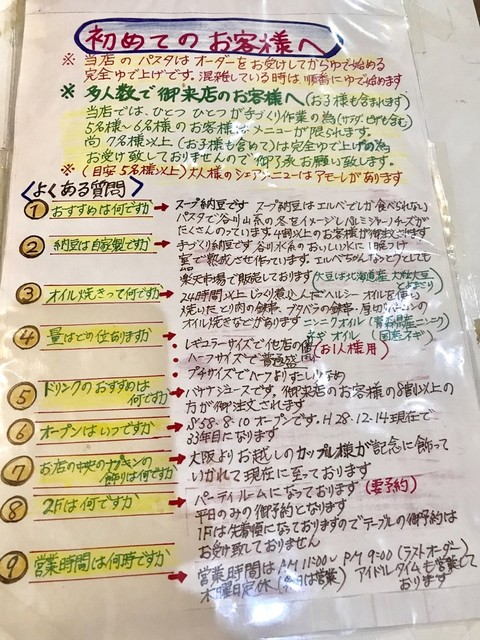 初めてのお客様へ
※ 当店のパスタはオーダーをお受けしてからゆで始める
完全ゆで上げです。混雑している時は、順番にゆで始めます
※ 多人数で御来店のお客様へ(お子様も含まれます)
当店では、ひとつひとつが手づくり作業の為(サラダ、ピザも含む)
5名様〜6名様のお客様はメニューが限られます。
尚7名様以上(お子様も含めて)は完全ゆで上げの為
お受け致しておりませんので御了承お願い致します。
※(目安5名様以上)大人様のシェアメニューはアモーレがあります
〈よくある質問〉
① おすすめは何ですか → スープ納豆です スープ納豆はエルベでしか食べられない
パスタで谷川山系の冬をイメージしパルミジャーノチーズが
たくさんのっています。4割以上のお客様が御注文されます
② 納豆は自家製ですか → 手づくり納豆です 谷川水系のおいしい水に1晩つけ
室で熟成させ作っています。エルベちゃんなっとうとしても
楽天市場で販売しております(大豆は北海道産 大粒大豆
とよまさり)
③ オイル焼きって何ですか → 24時間以上じっくり煮込んだヘルシーオイルを使い
焼いた とり肉の鉄串・ブタバラの鉄串・厚切りベーコンの
オイル焼きなどがあります ニンニクオイル(青森県産ニンニク)
ネギオイル(国産ネギ)
④ 量はどの位ありますか → ・レギュラーサイズで他店の
・ハーフサイズで普通盛 (お1人様用)
・プチサイズでハーフよりすこし
⑤ ドリンクのおすすめは
何ですか → バナナジュースです。御来店のお客様の8割以上の
方が御注文されます
⑥ オープンはいつですか → S'58.8.10オープンです。H28.12.14現在で
33年目になります
⑦ お店の中央のナプキンの
飾りは何ですか → 大阪よりお越しのカップル様が記念に飾って
いかれて現在に至っております
⑧ 2Fは何ですか → パーティルームになっております(要予約)
平日のみの御予約となります
1Fは先着順になっておりますのでテーブルの御予約は
お受け致しておりません
⑨ 営業時間は何時ですか → 営業時間はAM11:00〜PM9:00(ラストオーダー)
木曜日定休(祭日は営業) アイドルタイムも営業して
おります